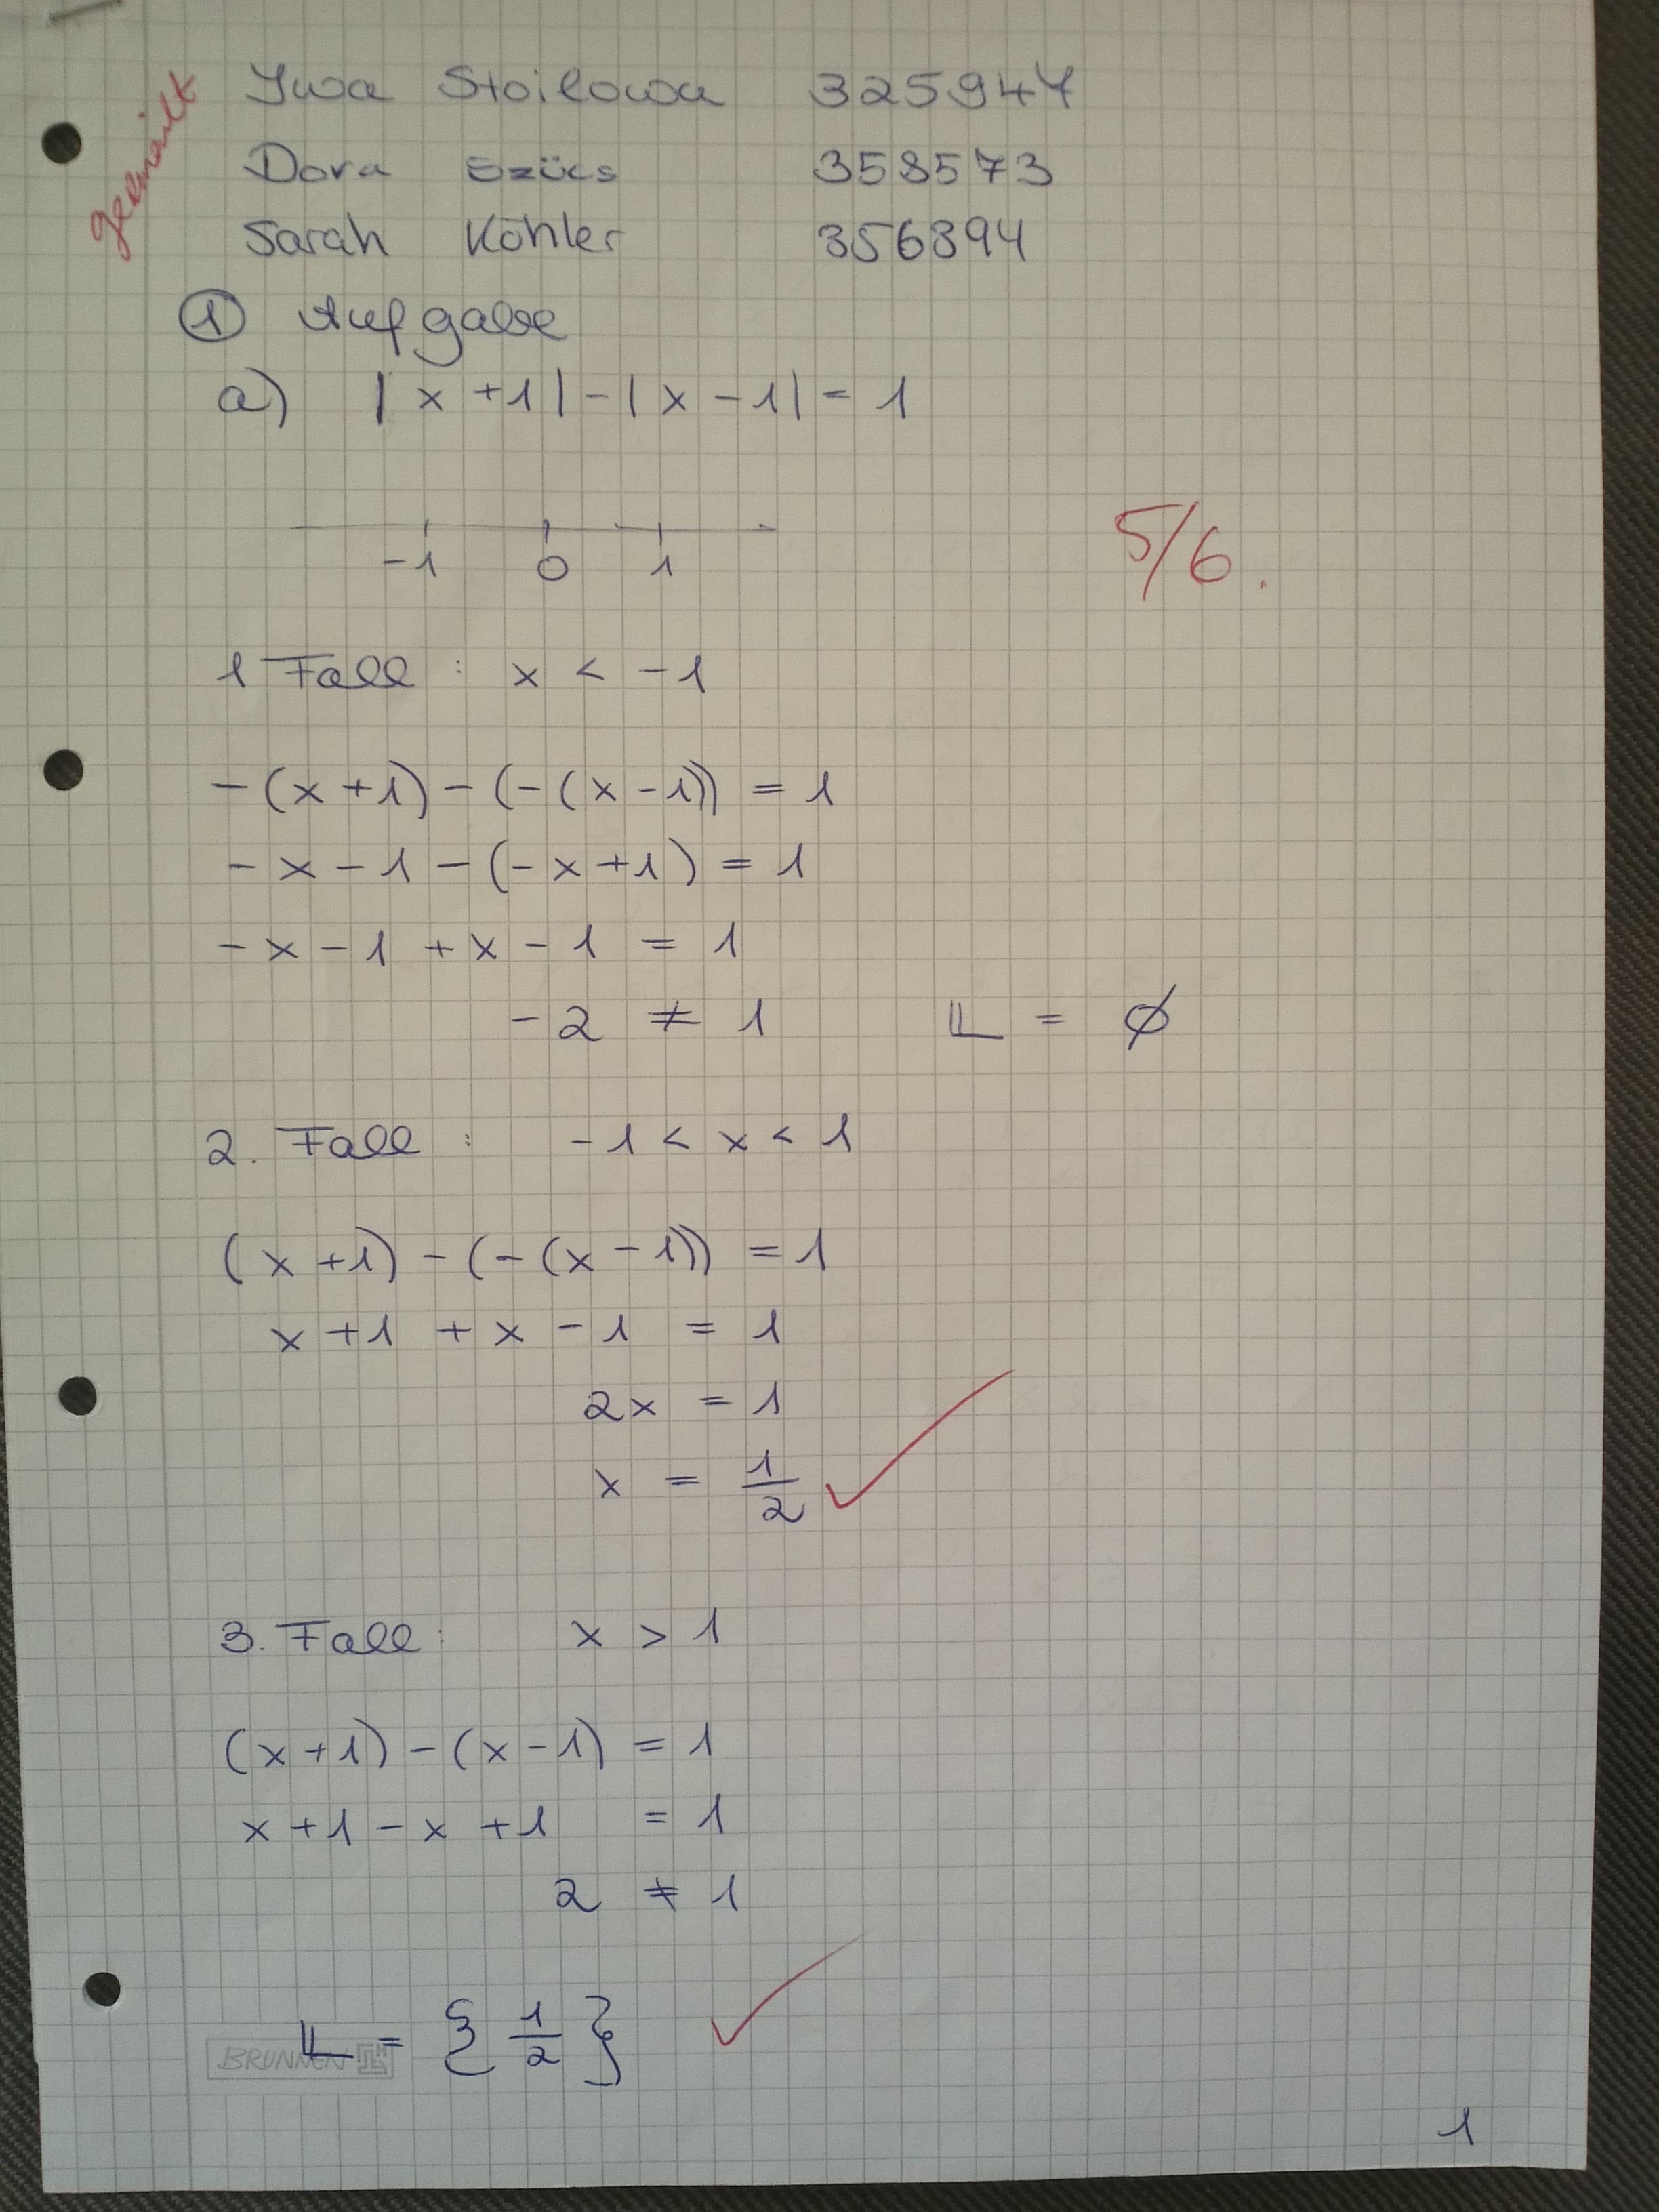 gemailt
Iwa Stoilowa 325947
Dora Szücs 358573
Sarah Köhler 356394
① Aufgabe
a) |x+1|-|x-1| = 1
-1 0 1
5/6.
1 Fall : x < -1
-(x+1)-(-(x-1)) = 1
-x-1-(-x+1) = 1
-x-1+x-1 = 1
-2 ≠ 1 𝕃 = ∅
2. Fall : -1 < x < 1
(x+1)-(-(x-1)) = 1
x+1+x-1 = 1
2x = 1
x = 1/2 ✓
3. Fall: x > 1
(x+1)-(x-1) = 1
x+1-x+1 = 1
2 ≠ 1
𝕃 = {1/2} ✓
BRUNNEN
1